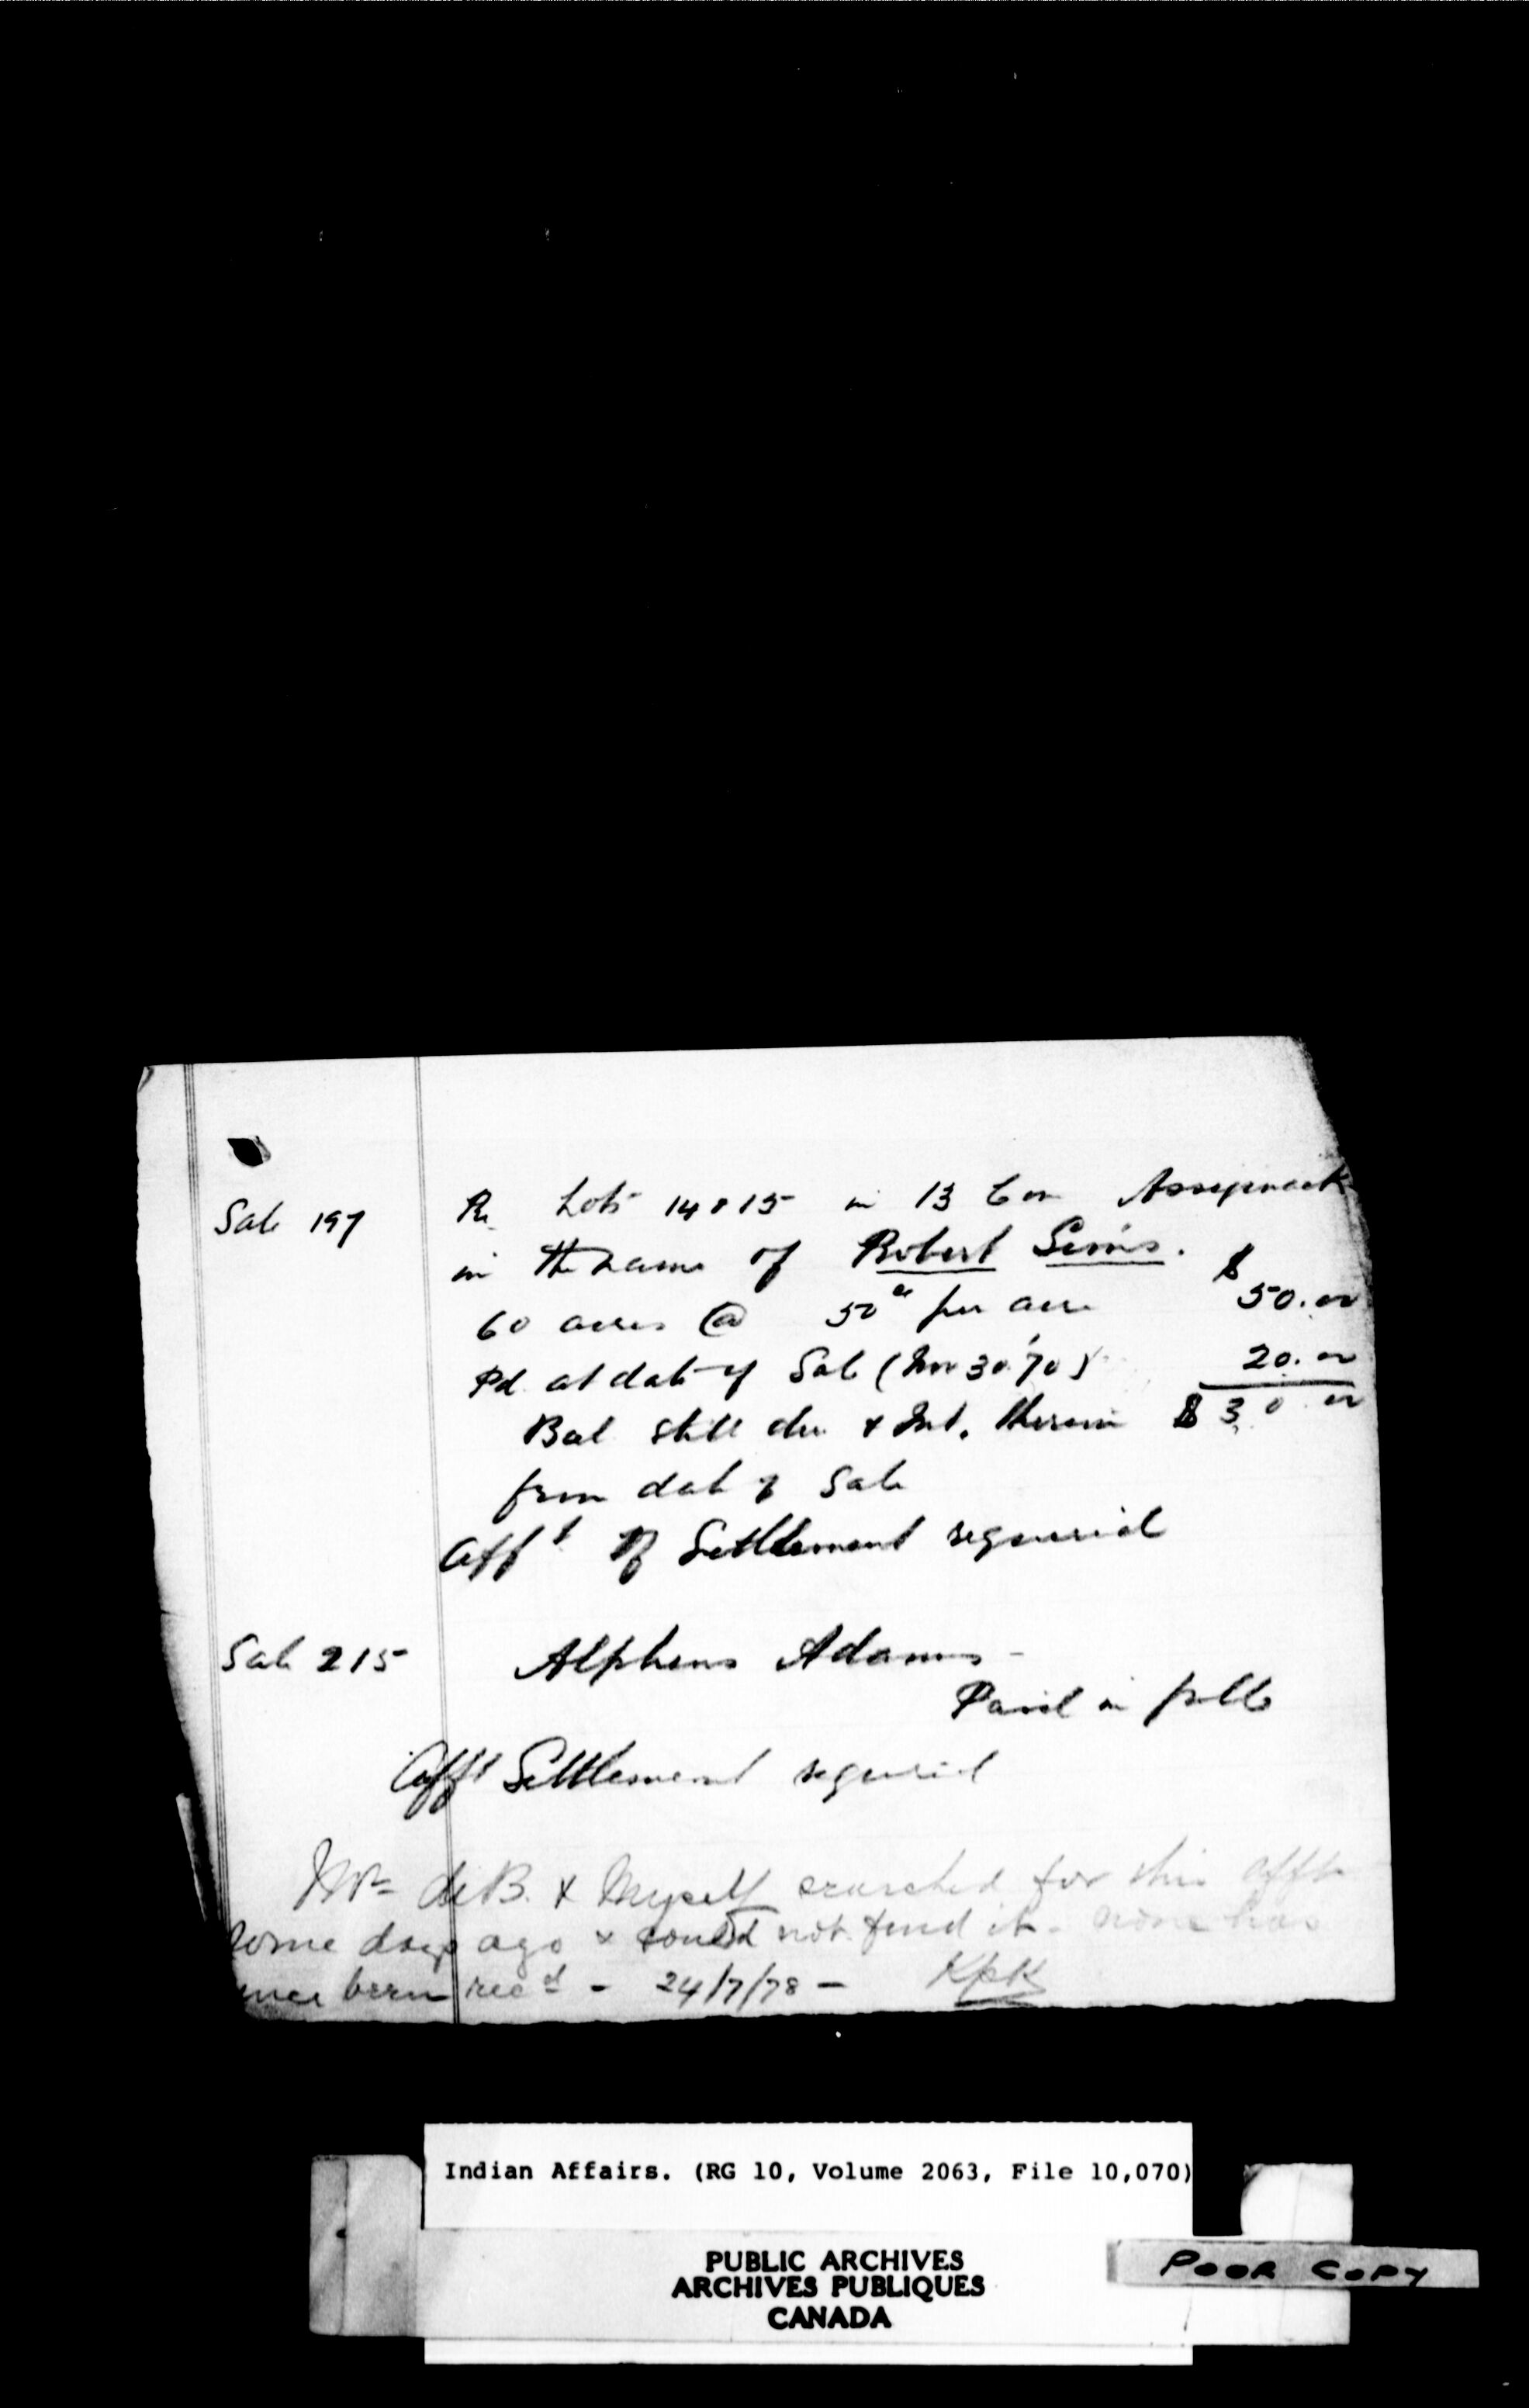 Sale 197 Re Lots 14 & 15 in 13 Con Assiginack
in the name of Robert Simis.
60 acres @ 50 cts per acre $ 50.00
Pd. at date of Sale (Nov 30 '70) 20.00
Bal still due & Int. thereon $ 30.00
from date of Sale
Afft of Settlement required
Sale 215 Alpheus Adams -
Paid in full
Afft Settlement required
Mr. deB. & Myself searched for this afft
some days ago & could not find it - none has
since been recd - 24/7/78 -
Indian Affairs. (RG 10, Volume 2063, File 10,070)
PUBLIC ARCHIVES
ARCHIVES PUBLIQUES
CANADA
POOR COPY